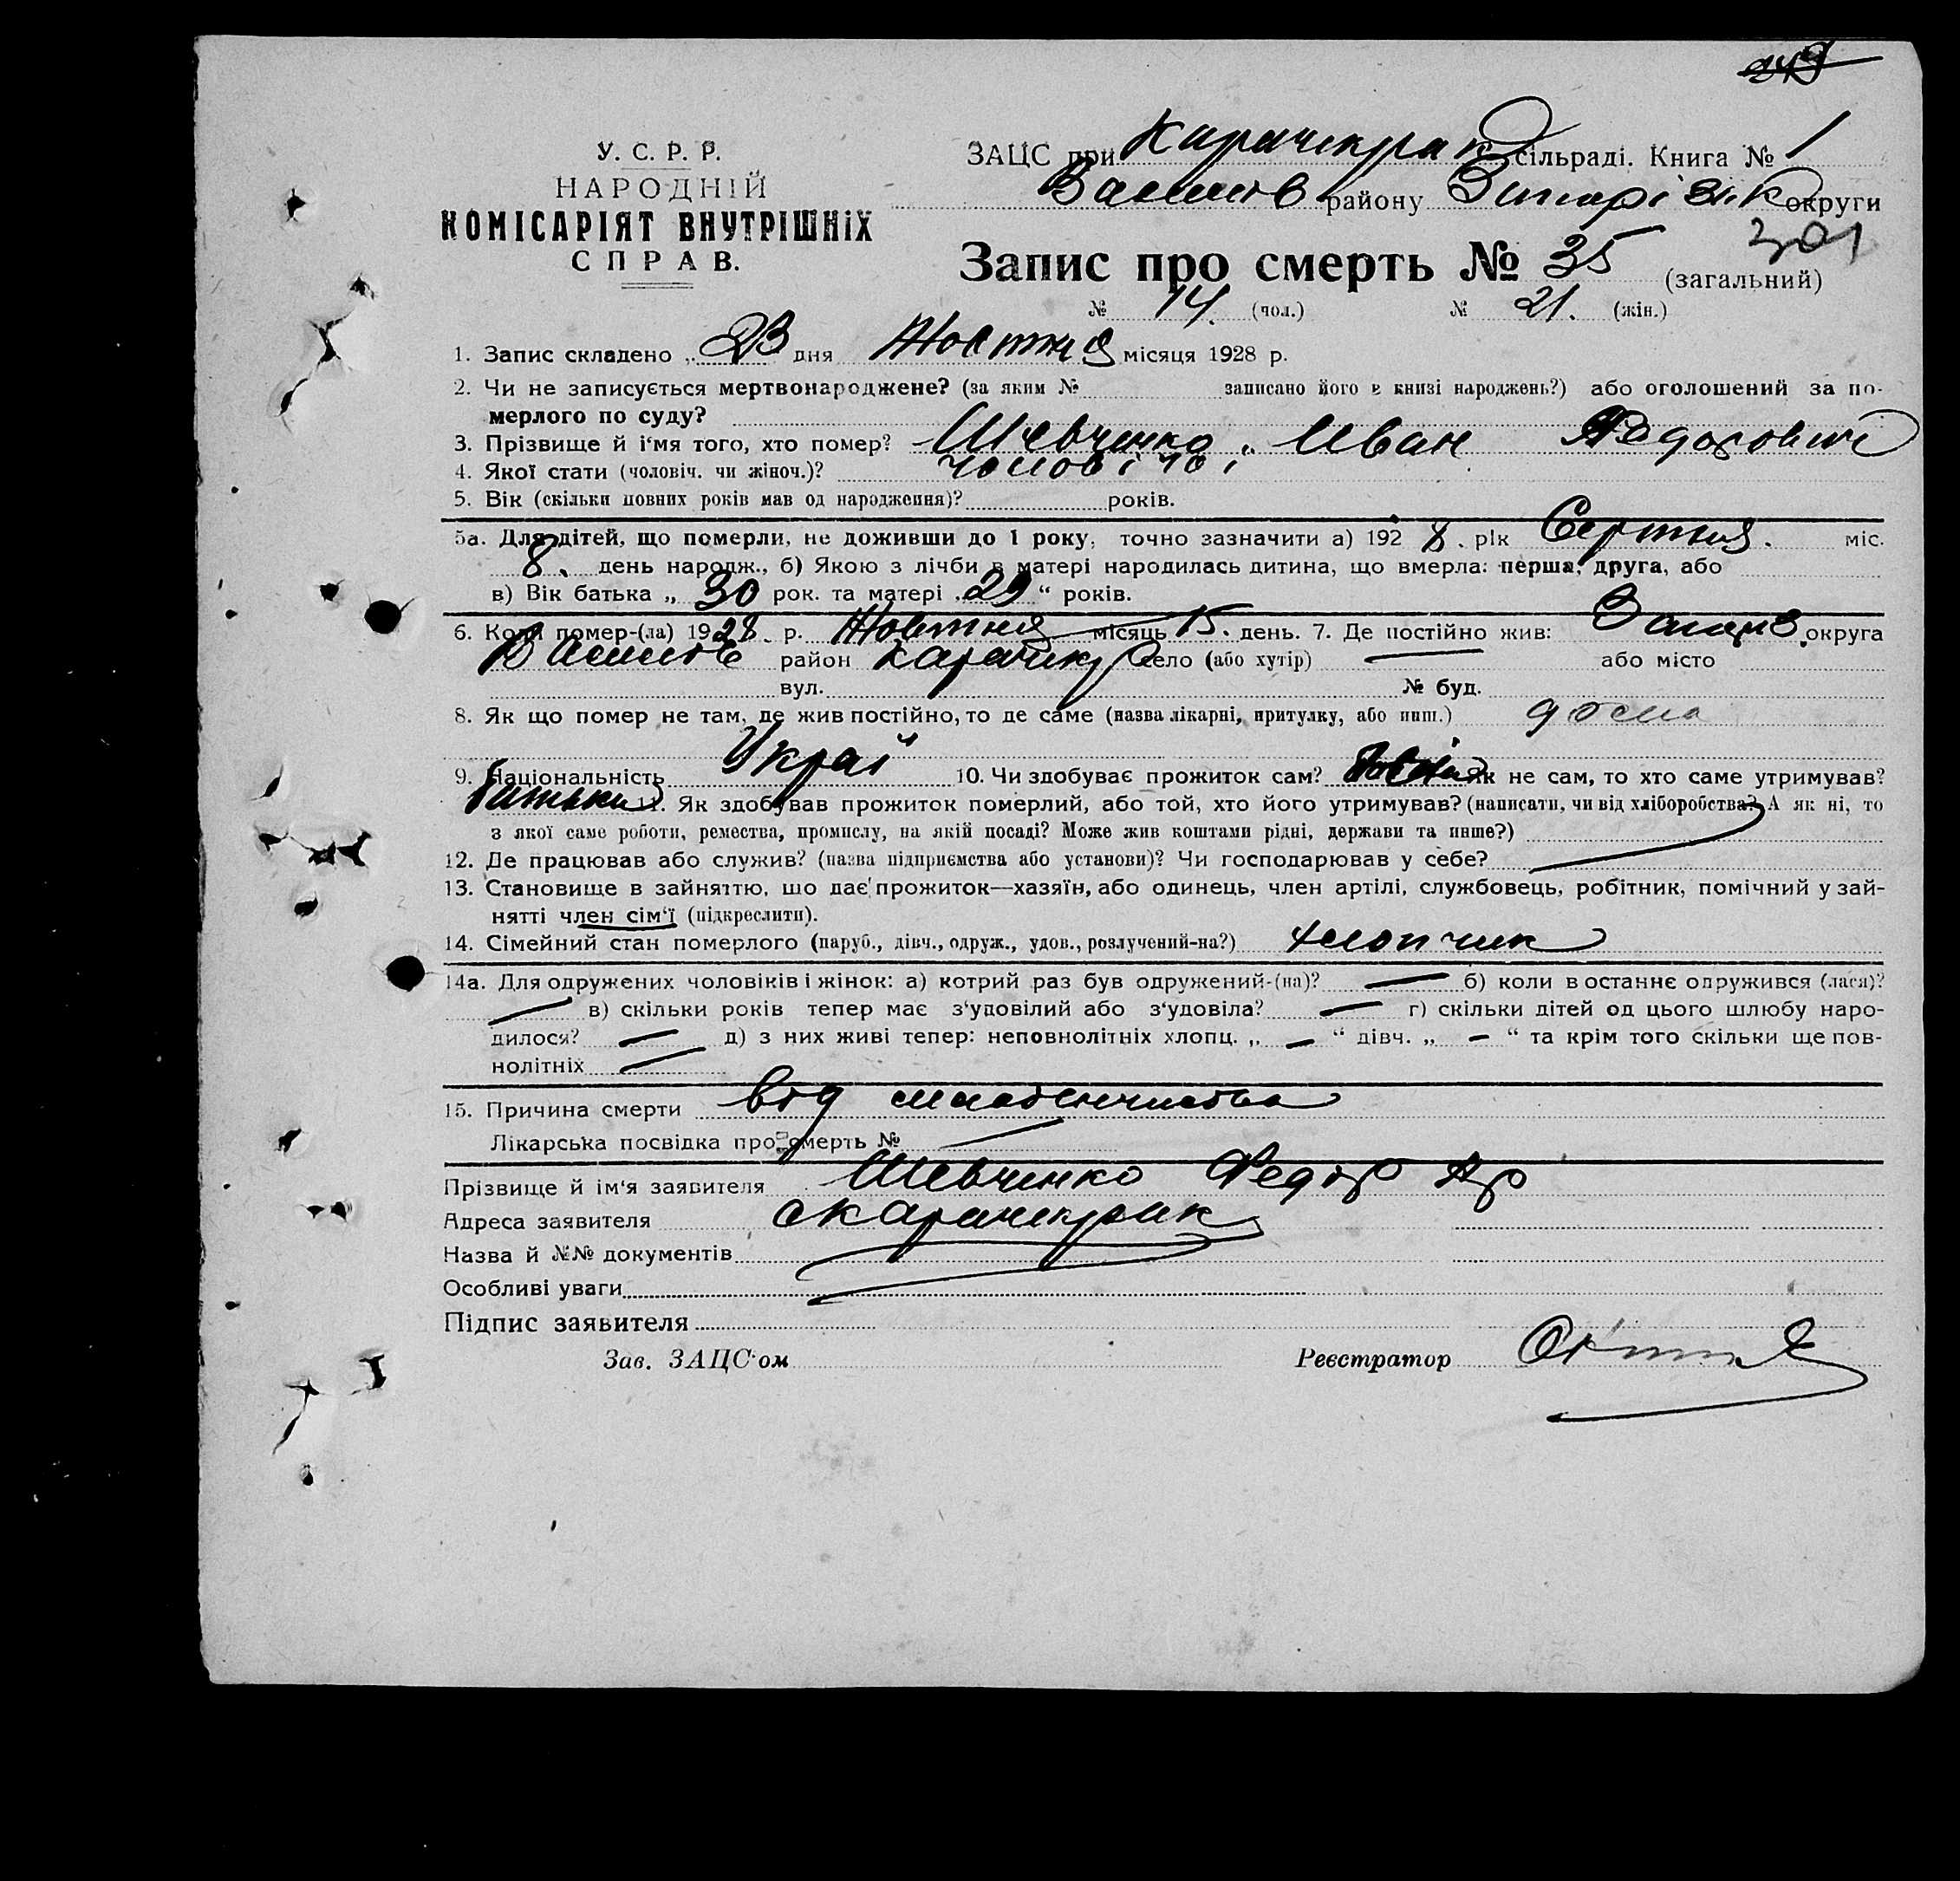 У. С. Р. Р.
НАРОДНІЙ
КОМІСАРІЯТ ВНУТРІШНІХ
СПРАВ.
ЗАЦС при Карачекрак сільраді. Книга № 1
Васил‌ів району Запорізьк округи
301
Запис про смерть № 35 (загальний)
№ 14. (чол.) № 21. (жін.)
1. Запис складено „ 23 дня Жовтня місяця 1928 р.
2. Чи не записується мертвонароджене? (за яким № записано його в книзі народжень?) або оголошений за по-
мерлого по суду?
3. Прізвище й і‘мя того, хто помер? Шевченко Иван Федорович
4. Якої стати (чоловіч. чи жіноч.)? чоловічої
5. Вік (скільки повних років мав од народження)? років.
5а. Для дітей, що померли, не доживши до 1 року, точно зазначити а) 192 8. рік Серпня. міс.
8. день народж., б) Якою з лічби в матері народилась дитина, що вмерла: перша, друга, або
в) Вік батька „ 30 рок. та матері „ 29 “ років.
6. Коли помер-(ла) 1928. р. Жовтня місяць 15. день. 7. Де постійно жив: Запоріз. округа
Васил‌ів район Карачекр село (або хутір) — або місто
вул. № буд.
8. Як що помер не там, де жив постійно, то де саме (назва лікарні, притулку, або инш.) дома
9. Національність Украї 10. Чи здобуває прожиток сам? Як не сам, то хто саме утримував?
батьки. Як здобував прожиток померлий, або той, хто його утримував? (написати, чи від хліборобства? А як ні, то
з якої саме роботи, ремества, промислу, на якій посаді? Може жив коштами рідні, держави та инше?)
12. Де працював або служив? (назва підприємства або установи)? Чи господарював у себе?
13. Становище в зайняттю, що дає прожиток—хазяїн, або одинець, член артілі, службовець, робітник, помічний у зай-
нятті член сім‘ї (підкреслити).
14. Сімейний стан померлого (паруб., дівч., одруж., удов., розлучений-на?) хлопчик
14а. Для одружених чоловіків і жінок: а) котрий раз був одружений-(на)? — б) коли востаннє одружився (лася)?
— в) скільки років тепер має з‘удовілий або з‘удовіла? — г) скільки дітей од цього шлюбу наро-
дилося? — д) з них живі тепер: неповнолітніх хлопц. „ — “ дівч. „ — “ та крім того скільки ще пов-
нолітніх —
15. Причина смерти від младенчиства
Лікарська посвідка про смерть № —
Прізвище й ім‘я заявителя Шевченко Федір Ар
Адреса заявителя с Карачекрак
Назва й №№ документів
Особливі уваги
Підпис заявителя
Зав. ЗАЦС‘ом Реєстратор